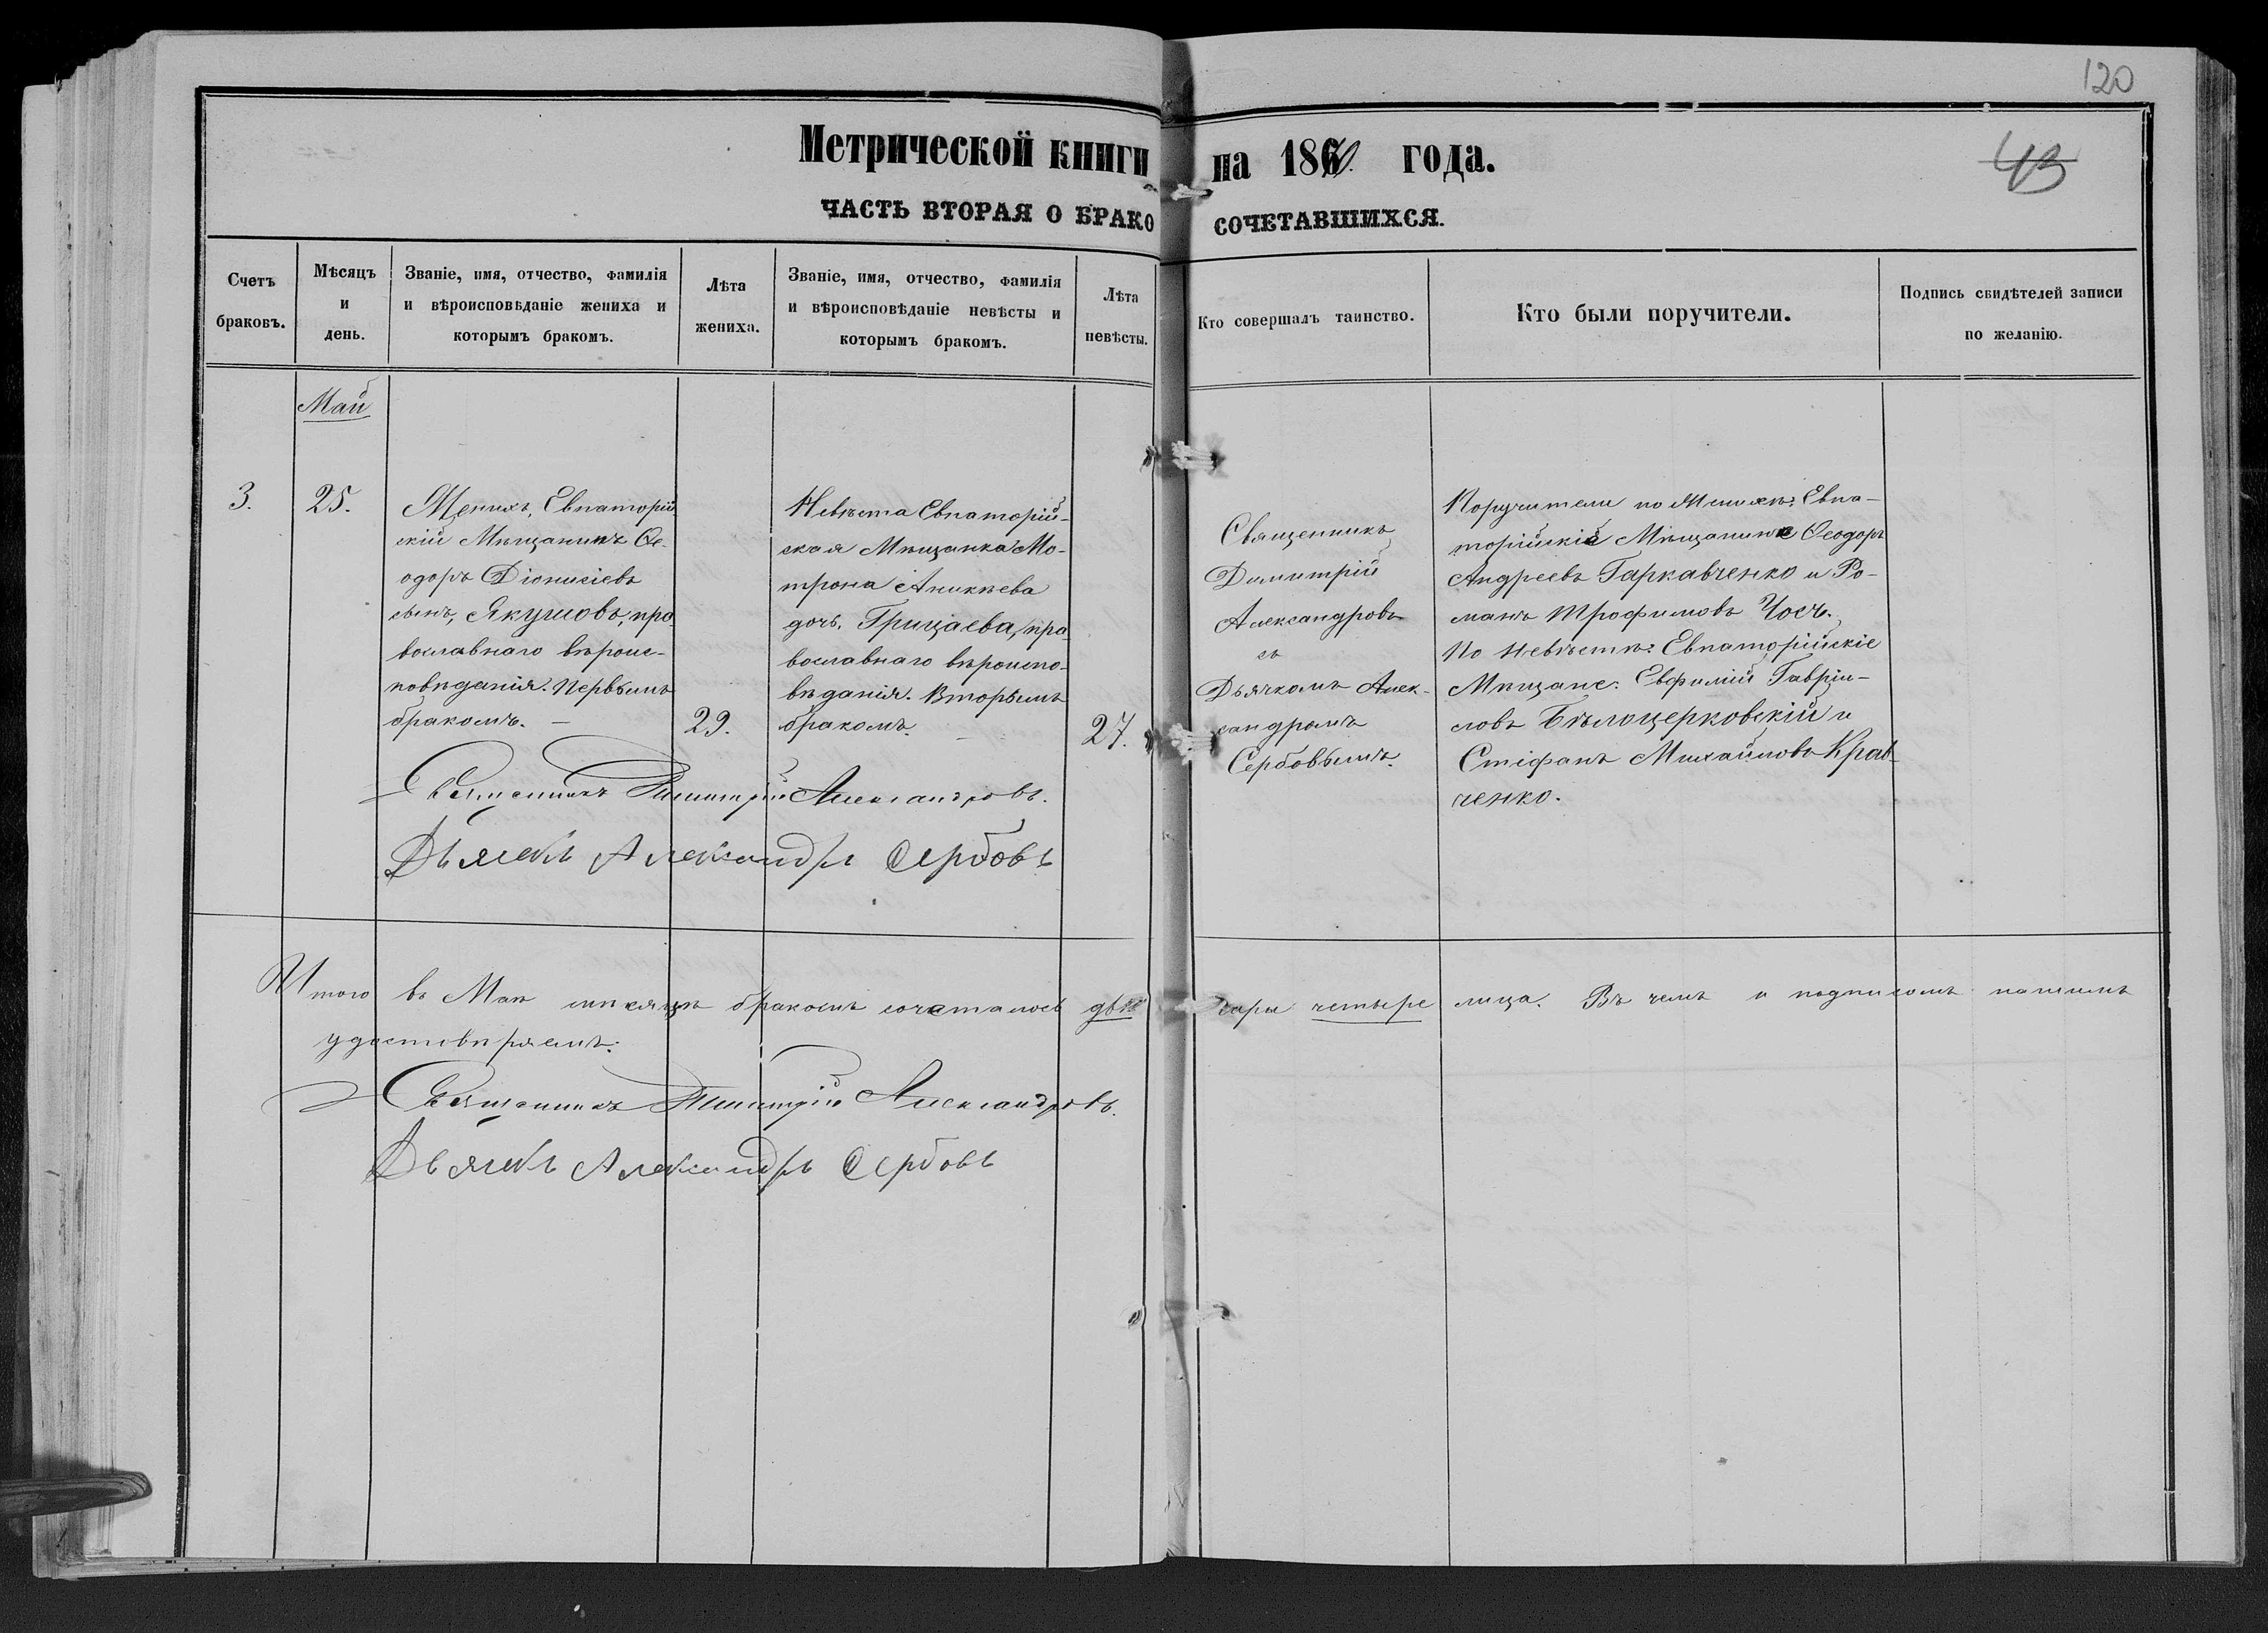 120
43
Метрической книги на 1860 года.
ЧАСТЬ ВТОРАЯ О БРАКОСОЧЕТАВШИХСЯ.
Счетъ
браковъ.
Мѣсяцъ
и
день.
Званіе, имя, отчество, фамилія
и вѣроисповѣданіе жениха и
которымъ бракомъ.
Лѣта
жениха.
Званіе, имя, отчество, фамилія
и вѣроисповѣданіе невѣсты и
которымъ бракомъ.
Лѣта
невѣсты.
Кто совершалъ таинство.
Кто были поручители.
Подпись свидѣтелей записи
по желанію.
Май
3.
25.
Женихъ, Евпаторій
скій Мѣщанинъ Ѳе-
одоръ Діонисіевъ
сынъ, Якушовъ, пра
вославнаго вѣроис-
повѣданія. Первымъ
бракомъ. —
29.
Невѣста Евпаторій-
ская Мѣщанка Мо-
трона Аникѣева
дочь, Грицаева, пра
вославнаго вѣроиспо-
вѣданія. Вторымъ
бракомъ.
27.
Священникъ
Димитрій
Александровъ
съ
Дьячкомъ Алек-
сандромъ
Сербовымъ.
Поручители по Женихѣ: Евпа-
торійскіе Мѣщанине Ѳеодоръ
Андреевъ Гаркавченко и Ро-
манъ Трофимовъ Чосъ.
По Невѣстѣ: Евпаторійскіе
Мѣщане: Евфимій Гавріи-
ловъ Бѣлоцерковскій и
Стіфанъ Михайловъ Крав-
ченко.
Священникъ Димитрій Александровъ.
Дьячекъ Александръ Сербовъ
Итого въ Маѣ мѣсяцѣ бракомъ сочеталось двѣ пары четыре лица. Въ чемъ и подписомъ нашимъ
удостовѣряемъ:
Священникъ Димитрій Александровъ.
Дьячекъ Александръ Сербовъ